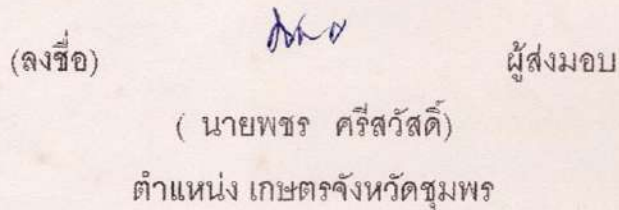 (ลงชื่อ) ผู้ส่งมอบ
( นายพชร ศรีสวัสดิ์)
ตำแหน่ง เกษตรจังหวัดชุมพร